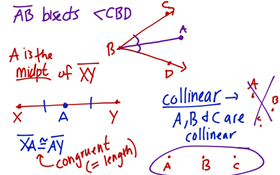 AB bisects <CBD
C
A
B
D
A is the
midpt of XY
X
A
Y
XA ≅ AY
congruent
(= length)
collinear →
A, B & C are
collinear
A
B
C
A
B
C